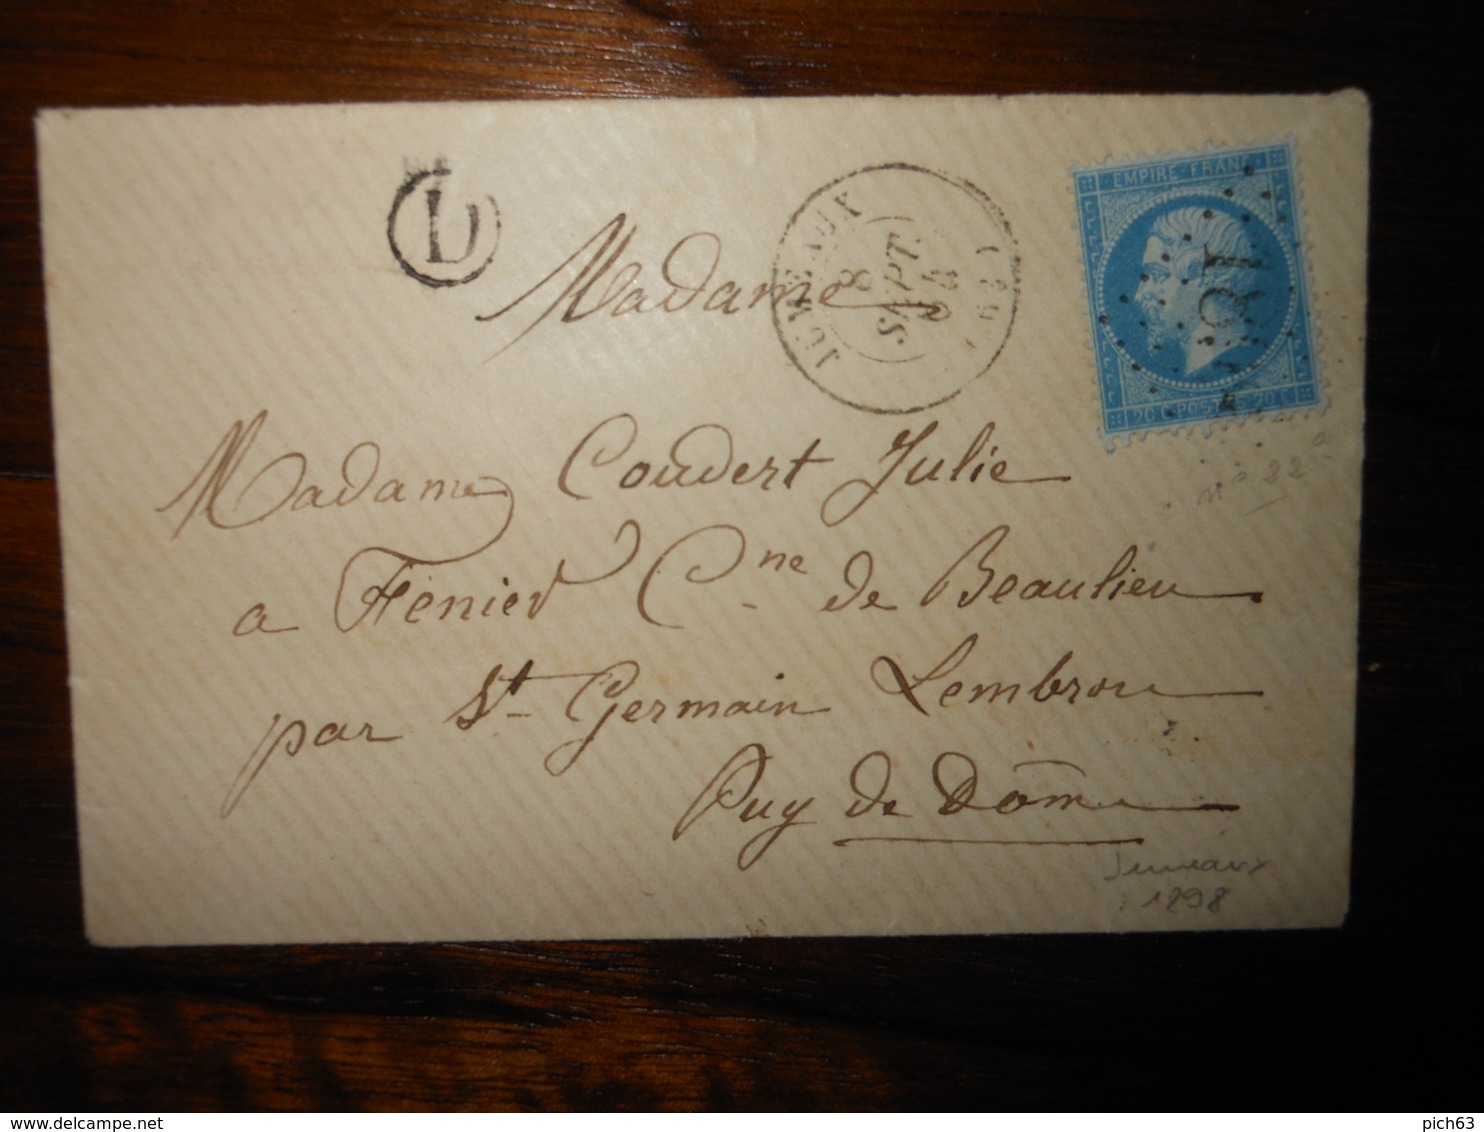 D
JUMEAUX
8
SEPT.
64
(62)
EMPIRE FRANC
20 C POSTES 20 C
n° 22
Madame
Madame Coudert Julie
a Fénier Cne de Beaulieu
par St Germain Lembron
Puy de Dôme
Jumeaux
1898
© delcampe.net
pich63